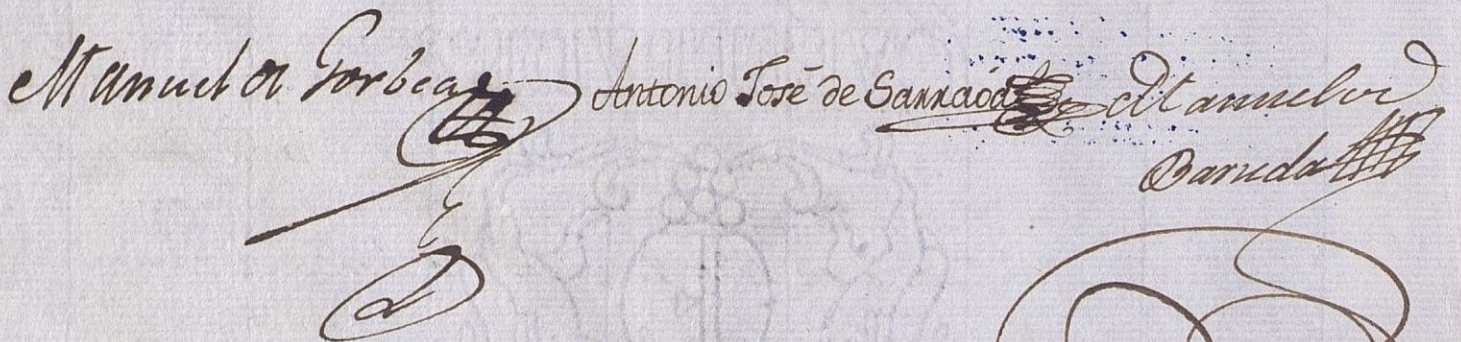 Manuel de Gorbea Antonio José de Sarraoa Manuel de
Baruda